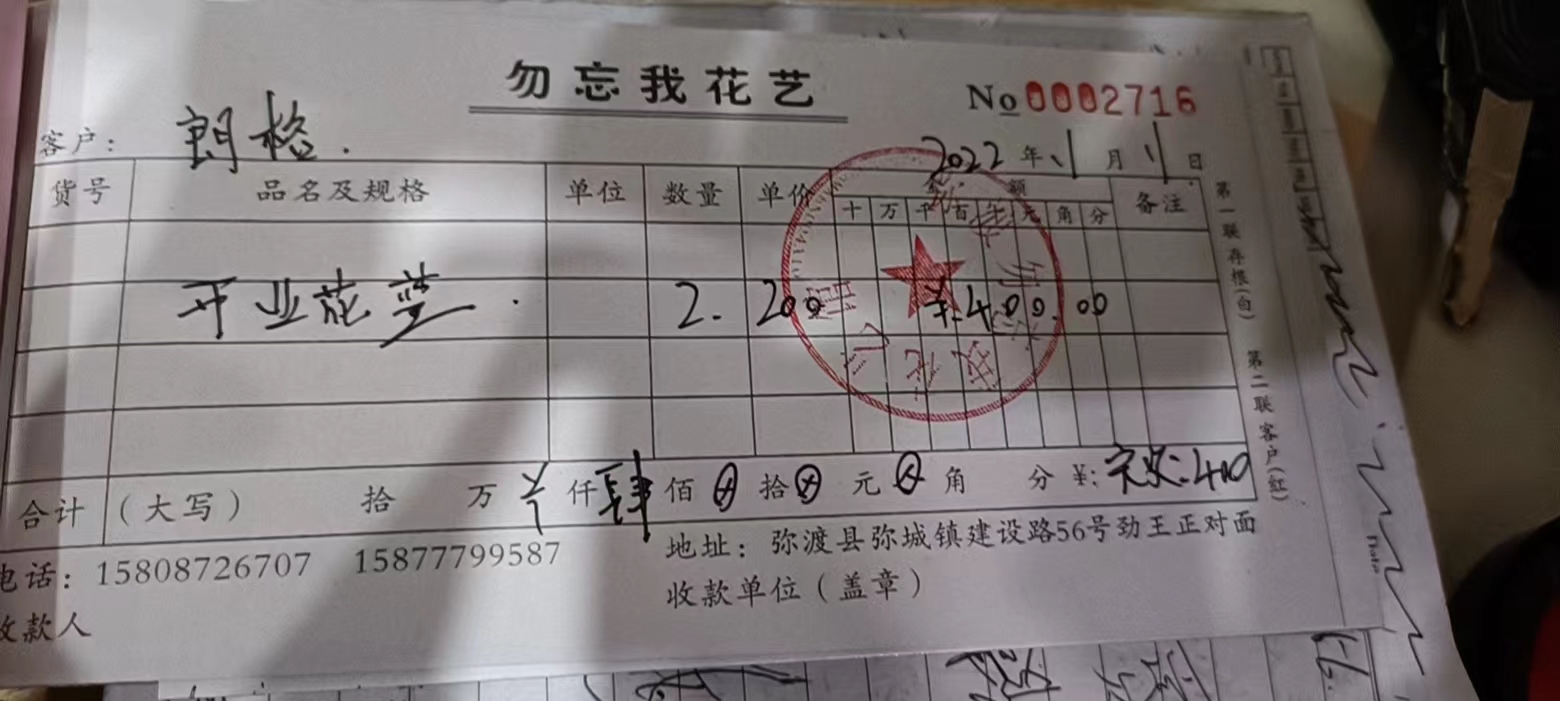 勿忘我花艺
No 0002716
客户：朗格.
2022年1月1日
货号 品名及规格 单位 数量 单价 金额 备注
十 万 千 百 十 元 角 分
开业花篮. 2. 200 ¥.400.00
合计 （大写） 拾 万 ¥ 仟 肆 佰 ⊕ 拾 ⊕ 元 ⊕ 角 分 ¥: 实收:400
电话：15808726707 15877799587
地址：弥渡县弥城镇建设路56号劲王正对面
收款人
收款单位（盖章）
第一联存根(白)
第二联客户(红)